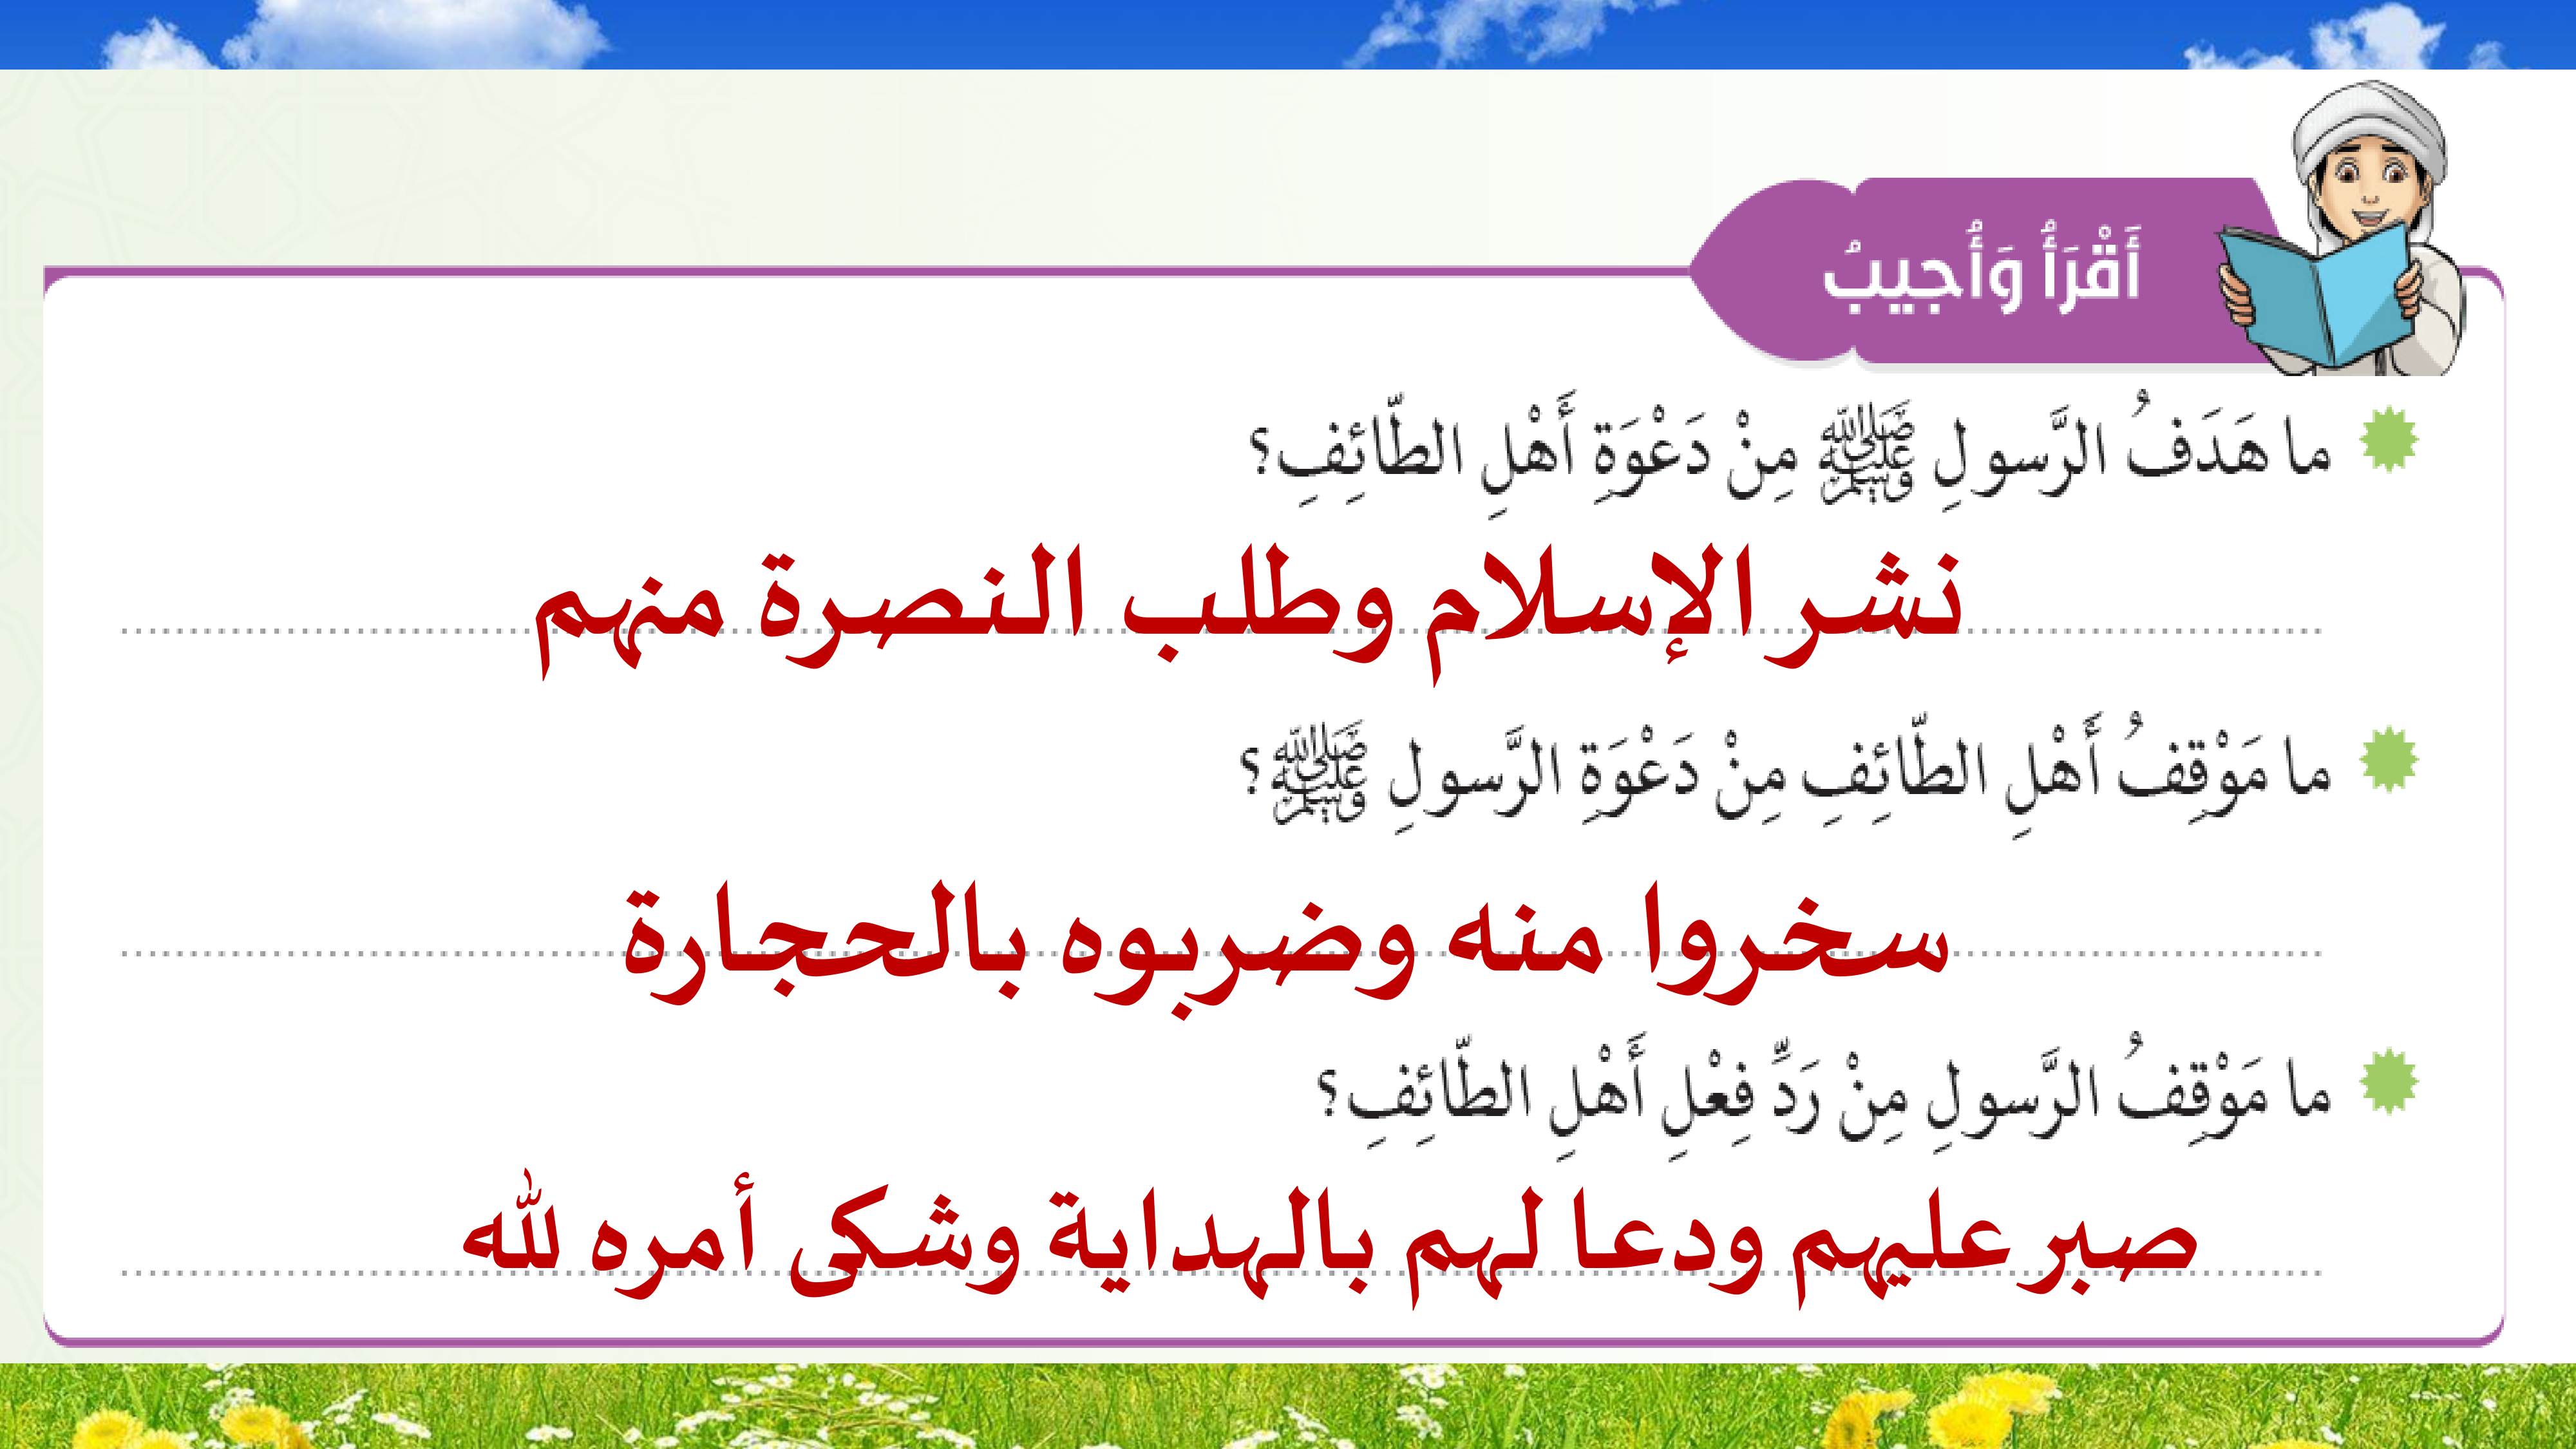 أَقْرَأُ وَأُجيبُ
ما هَدَفُ الرَّسولِ ﷺ مِنْ دَعْوَةِ أَهْلِ الطّائِفِ؟
نشر الإسلام وطلب النصرة منهم
ما مَوْقِفُ أَهْلِ الطّائِفِ مِنْ دَعْوَةِ الرَّسولِ ﷺ؟
سخروا منه وضربوه بالحجارة
ما مَوْقِفُ الرَّسولِ مِنْ رَدِّ فِعْلِ أَهْلِ الطّائِفِ؟
صبر عليهم ودعا لهم بالهداية وشكى أمره لله